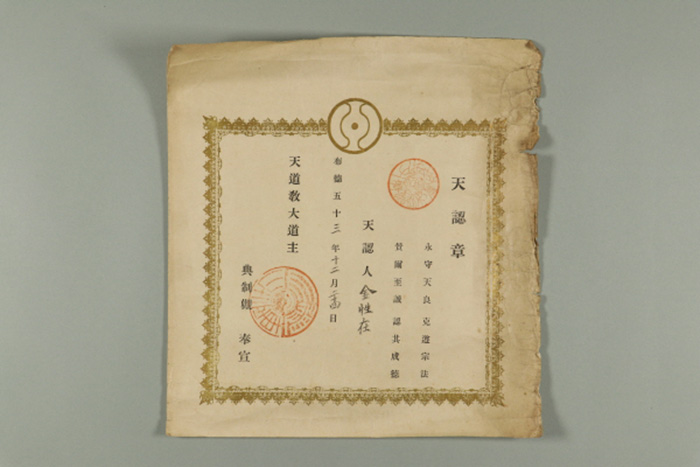 天認章
永守天良克遵宗法
賛爾至誠認其成德
天認人 金性在
布德五十三年十二月 日
天道敎大道主
典制觀 奉宣